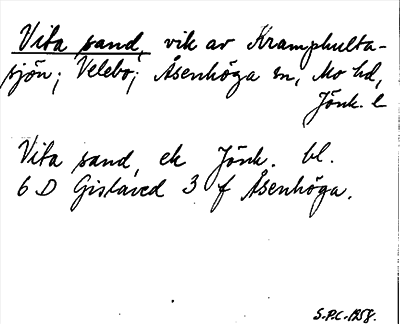 Vita sand, vik av Kramphulta-
sjön; Velebo; Åsenhöga sn, Mo hd,
Jönk. l
Vita sand, ek Jönk. bl.
6 D Gislaved 3 f Åsenhöga.
S.P.C. 1958.